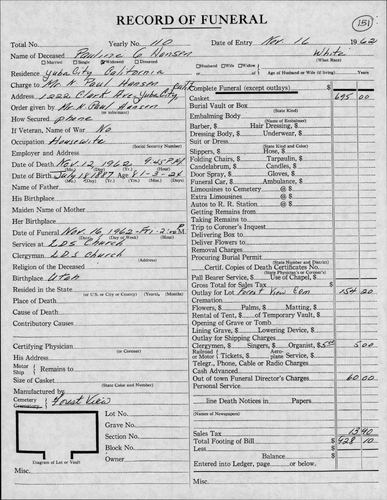 RECORD OF FUNERAL
151
Total No. Yearly No. 110 Date of Entry Nov. 16 1962
Name of Deceased Pauline G Hansen White
(What Race)
Married Single Widowed Divorced Husband Wife Widow or Age of Husband or Wife (if living) Yrs.
Residence Yuba City California
Charge to Mr. N. Paul Hansen
Address 1222 Clark Ave Yuba City,
Order given by Mr. N. Paul Hansen
(or informant)
How Secured phone
If Veteran, Name of War No
Occupation Housewife
(Social Security Number)
Employer and Address
Date of Death Nov. 12, 1962 9:45 P.M.
(Mo.) (Day) (Yr.) (Hour)
Date of Birth July 18 1887 Age 81-3-24
(Mo.) (Day) (Yr.) (Yrs.) (Mo.) (Days)
Name of Father
His Birthplace
Maiden Name of Mother
Her Birthplace
Date of Funeral Nov. 16, 1962-Fri-2:00 P.M.
(Mo.) (Day) (Yr.) (Hour)
Services at LDS Church
Clergyman LDS Church
Religion of the Deceased
Birthplace Utah
Resided in the State
(or U.S. or City or County) (Years, Months)
Place of Death
Cause of Death
Contributory Causes
Certifying Physician
(or Coroner)
His Address
Motor Ship Remains to
Size of Casket
(State Color and Number)
Manufactured by
Cemetery Crematory Forest View
Lot No.
Grave No.
Section No.
Block No.
Owner
Diagram of Lot or Vault
Misc.
Complete Funeral (except outlays) $
Casket 695 00
Burial Vault or Box
(State Kind)
Embalming Body
(Name of Embalmer)
Barber, $ Hair Dressing, $
Dressing Body, $ Underwear, $
Suit or Dress
(State Kind and Color)
Slippers, $ Hose, $
Folding Chairs, $ Tarpaulin, $
Candelabrum, $ Candles, $
Door Spray, $ Gloves, $
Funeral Car, $ Ambulance, $
Limousines to Cemetery @ $
Extra Limousines @ $
Autos to R. R. Station @ $
Getting Remains from
Taking Remains to
Trip to Coroner's Inquest
Delivering Box to
Deliver Flowers to
Removal Charges
Procuring Burial Permit
(State Number and District)
Certif. Copies of Death Certificates No.
(State Physician's or Coroner's)
Pall Bearer Service, $ Use of Chapel, $
Gross Total for Sales Tax $
Outlay for Lot Forest View Cem 154 20
Cremation
Flowers, $ Palms, $ Matting, $
Rental of Tent, $ of Temporary Vault, $
Opening of Grave or Tomb
Lining Grave, $ Lowering Device, $
Outlay for Shipping Charges
Clergymen, $ Singers, $ Organist, $ 5.00 5 00
Railroad or Motor Tickets, $ Aeroplane Service, $
Telegr., Phone, Cable or Radio Charges
Cash Advanced
Out of town Funeral Director's Charges 60 00
Personal Service
line Death Notices in Papers
(Names of Newspapers)
Sales Tax 13.90
Total Footing of Bill $ 928 10
Less $
Balance $
Entered into Ledger, page or below.
Misc.